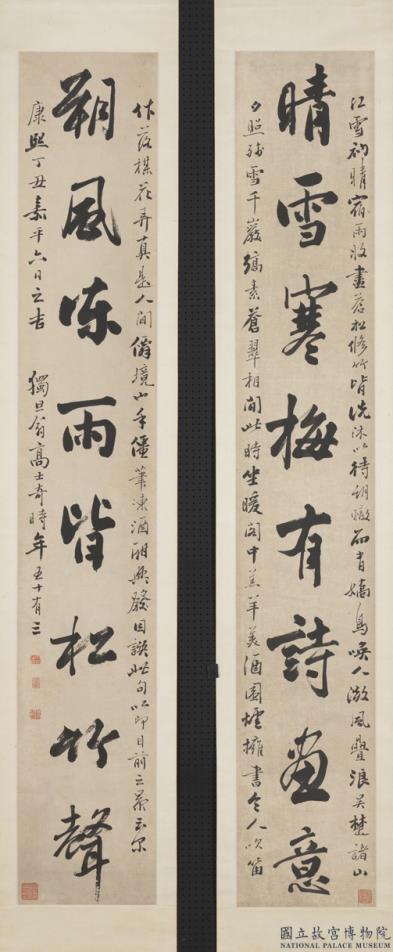 江雪初晴宿雨收盡蒼松脩竹皆洗沐以待朝暾而青嬌鳥喚人微風疊浪吳楚諸山
晴雪寒梅有詩畫意
夕照殘雪千巖縞素蒼翠相間此時坐暖閣中羊美酒圍爐擁書令人吹笛
作落梅花弄真是人間僊境也手僵筆凍酒酣興發因談此句以印目前之景云尔
朔風涷雨皆松竹聲
康熙丁丑嘉平六日之吉 獨旦翁高士奇時年五十有三
國立故宮博物院
NATIONAL PALACE MUSEUM